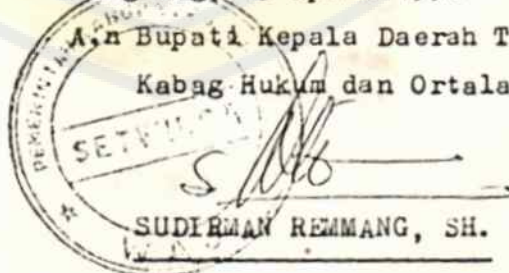 A,n Bupati Kepala Daerah T
Kabag Hukum dan Ortala
SETWILDA
SUDIRMAN REMMANG, SH.